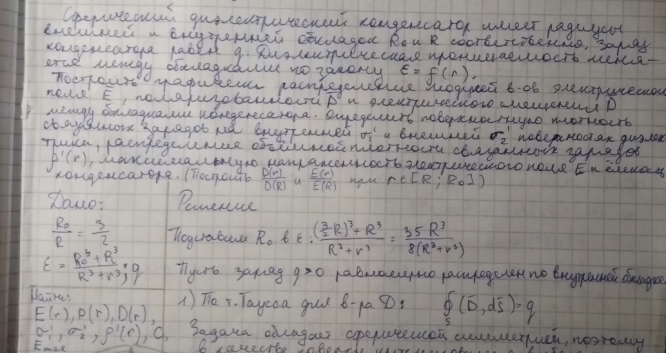 Сферический диэлектрический конденсатор имеет радиусы
внешней и внутренней обкладок R₀ и R соответственно, заряд
конденсатора равен q. Диэлектрическая проницаемость меня-
ется между обкладками по закону ε = f(r).
Построить графически распределение модулей в-ов электрического
поля E, поляризованности P и электрического смещения D
между обкладками конденсатора. Определить поверхностную плотность
связанных зарядов на внутренней σ₁' и внешней σ₂' поверхностях диэлек-
трика, распределение объёмной плотности связанных зарядов
ρ'(r), максимальную напряженность электрического поля E и ёмкость
конденсатора. (Построить D(r)/D(R) и E(r)/E(R) при r∈[R; R₀])
Дано: Решение
R₀/R = 3/2
Подставим R₀ в ε: ((3/2 R)³ + R³)/(R³ + r³) = 35 R³/8(R³ + r³)
ε = (R₀³ + R³)/(R³ + r³); q
Пусть заряд q > 0 равномерно распределен по внутренней обкладке
Найти: 1) По т. Гаусса для в-ра D: ∮ₛ (D, dS) = q
E(r), P(r), D(r),
σ₁', σ₂', ρ'(r), C, Задача обладает сферической симметрией, поэтому
Emax в качестве